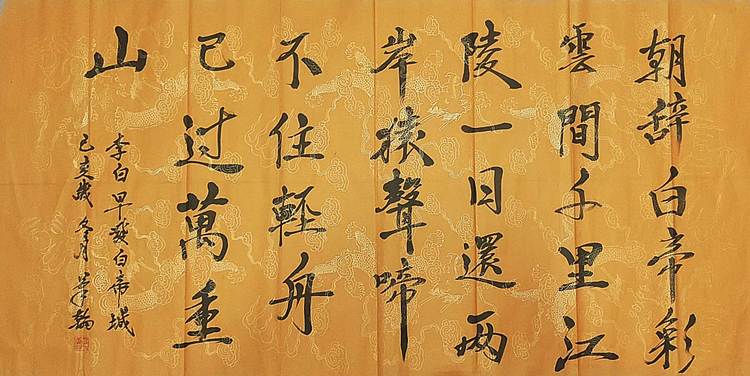 朝辞白帝彩
雲間千里江
陵一日還兩
岸猿聲啼
不住輕舟
已过萬重
山
李白早發白帝城
己亥歲冬月